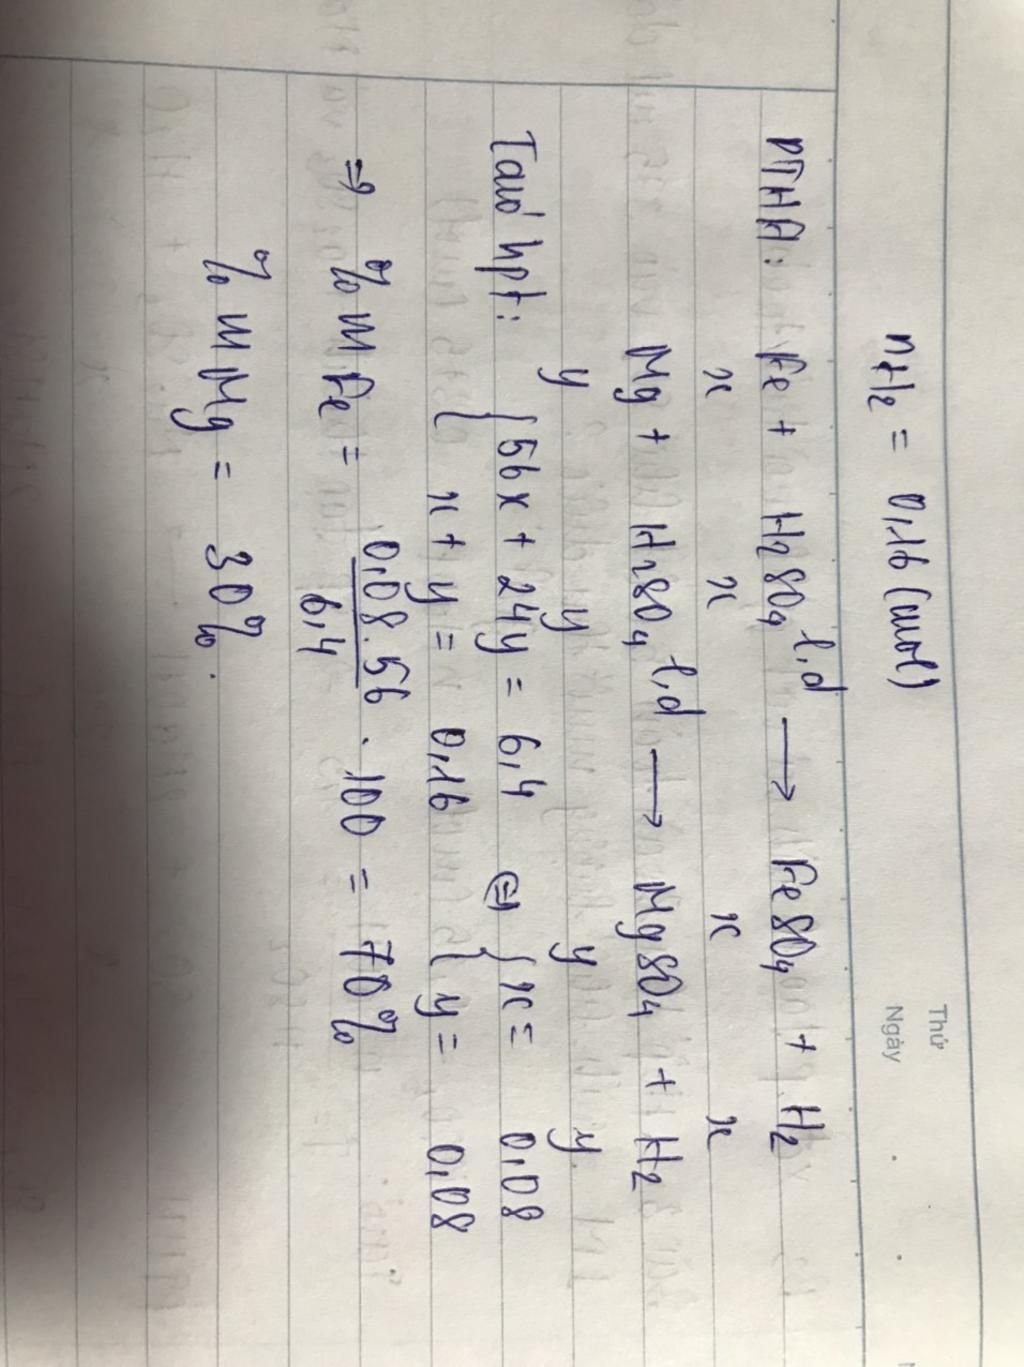 Thứ
Ngày
nH2 = 0,16 (mol)
PTHH: Fe + H2SO4 l,d → FeSO4 + H2
x x x x
Mg + H2SO4 l,d → MgSO4 + H2
y y y y
Ta có hpt: { 56x + 24y = 6,4 ⇔ { x = 0,08
x + y = 0,16 y = 0,08
⇒ % m Fe = 0,08.56 / 6,4 . 100 = 70%
% m Mg = 30%.